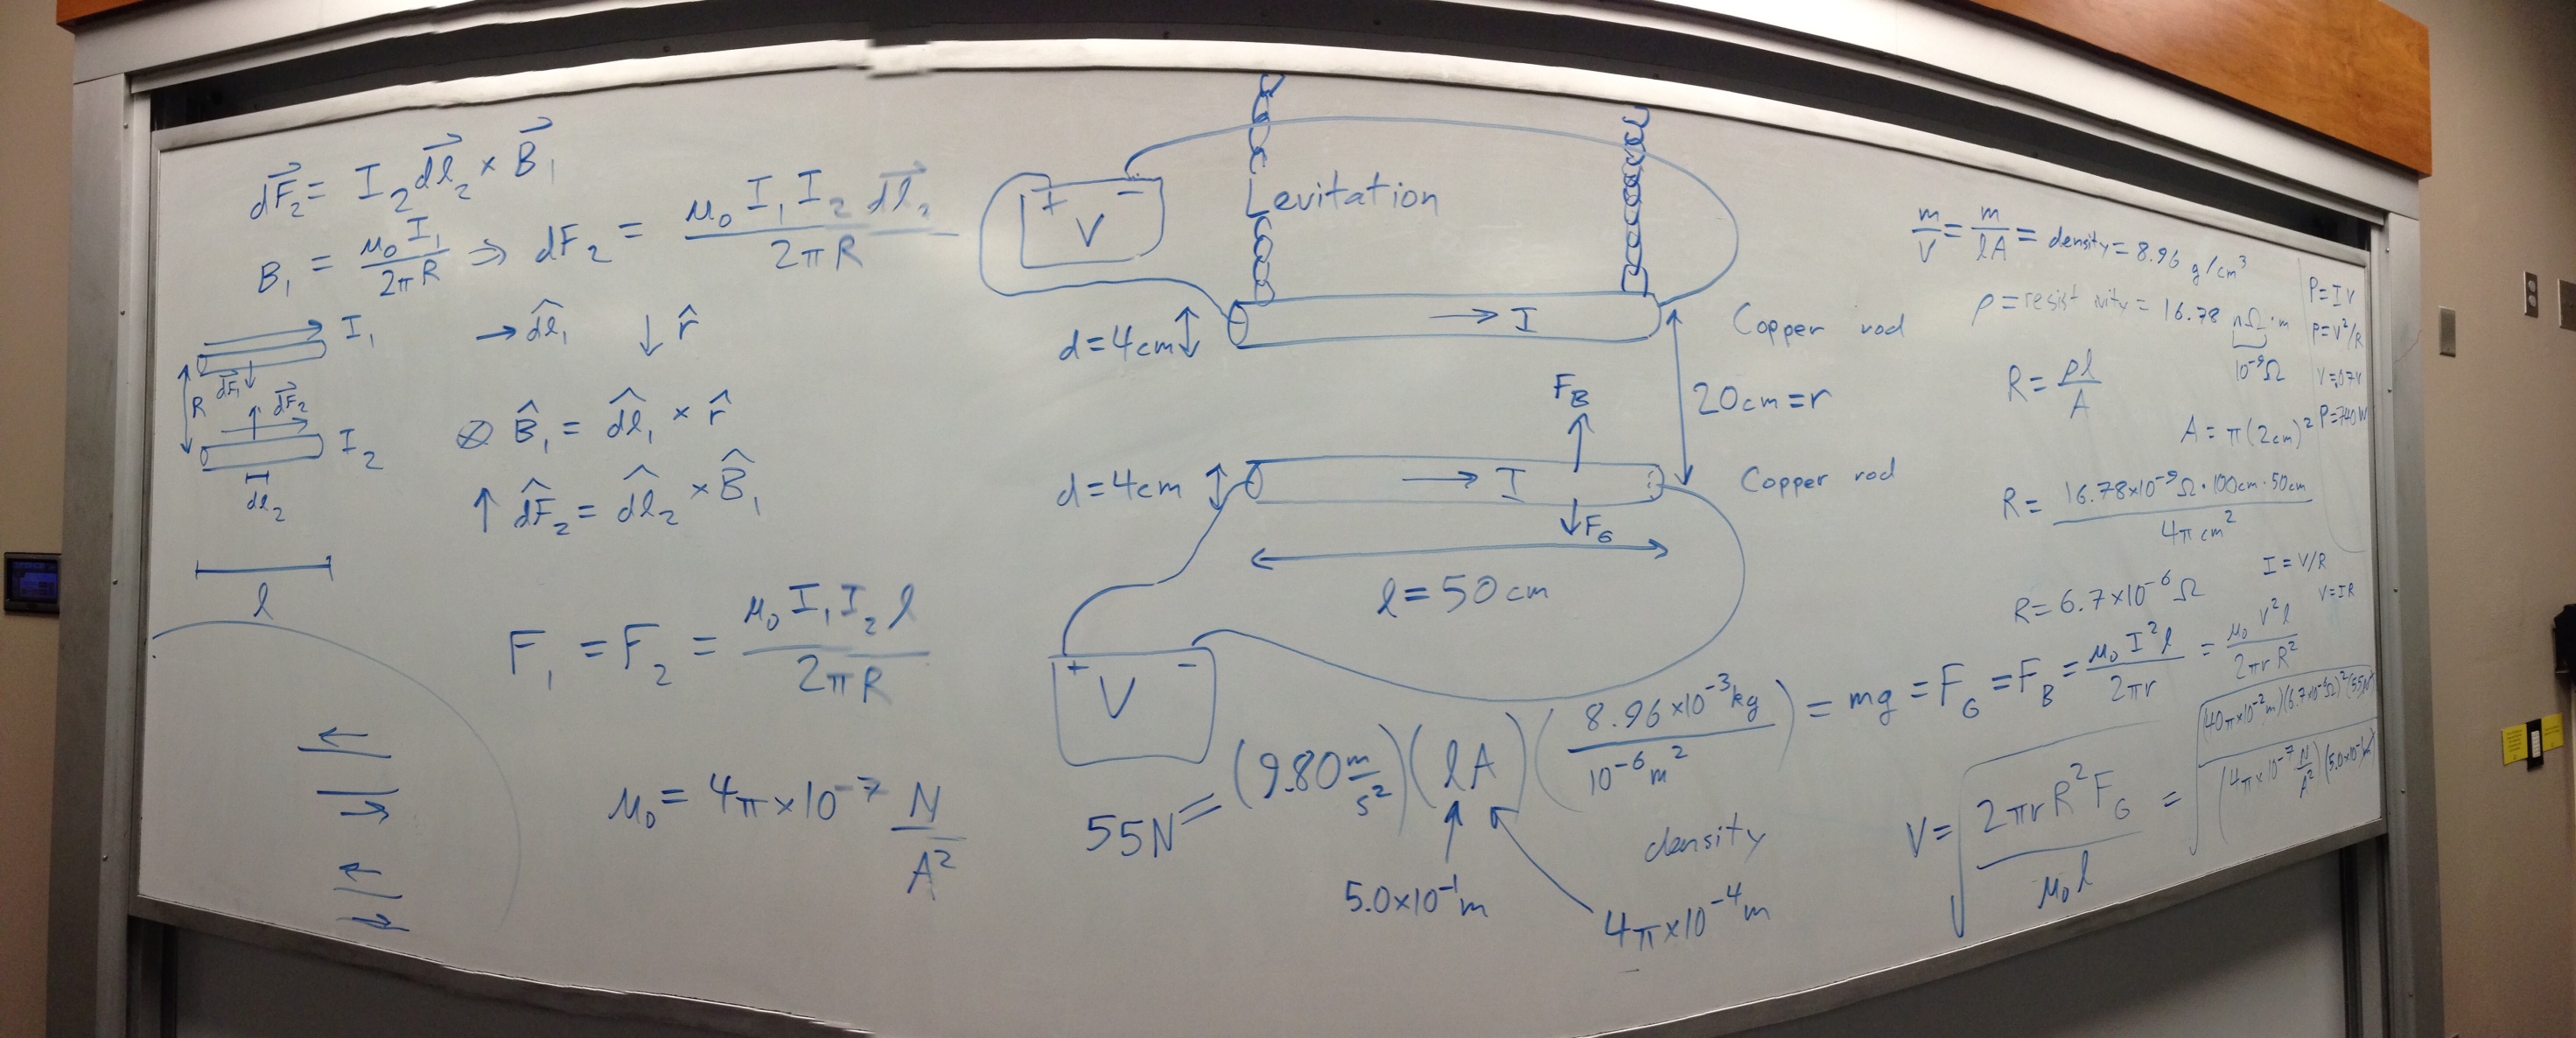 dF⃗₂ = I₂ dl⃗₂ × B⃗₁
B₁ = μ₀I₁/2πR ⇒ dF₂ = μ₀ I₁ I₂ dl⃗₂/2πR
I₁
→ dl̂₁ ↓ r̂
R
dF⃗₁ ↓
dF⃗₂
I₂
dl₂
⊗ B̂₁ = dl̂₁ × r̂
↑ dF̂₂ = dl̂₂ × B̂₁
l
F₁ = F₂ = μ₀ I₁ I₂ l/2πR
μ₀ = 4π×10⁻⁷ N/A²
+ −
V
Levitation
d=4cm
→ I
Copper rod
F_B
20cm=r
d=4cm
→ I
Copper rod
F_G
l=50cm
+ −
V
55N = (9.80 m/s²)(lA)(8.96×10⁻³kg/10⁻⁶m²) = mg = F_G = F_B = μ₀I²l/2πr = μ₀V²l/2πrR²
density
5.0×10⁻¹m
4π×10⁻⁴m
m/V = m/lA = density = 8.96 g/cm³
ρ = resistivity = 16.78 nΩ·m
10⁻⁹Ω
R = ρl/A
A = π(2cm)²
R = 16.78×10⁻⁹Ω·100cm·50cm/4π cm²
R = 6.7×10⁻⁶Ω
I = V/R
V = IR
V = √(2πrR²F_G/μ₀l) = √((40π×10⁻²m)(6.7×10⁻⁶Ω)²(55N)/(4π×10⁻⁷ N/A²)(5.0×10⁻¹m))
P=IV
P=V²/R
V=.07V
P=740W